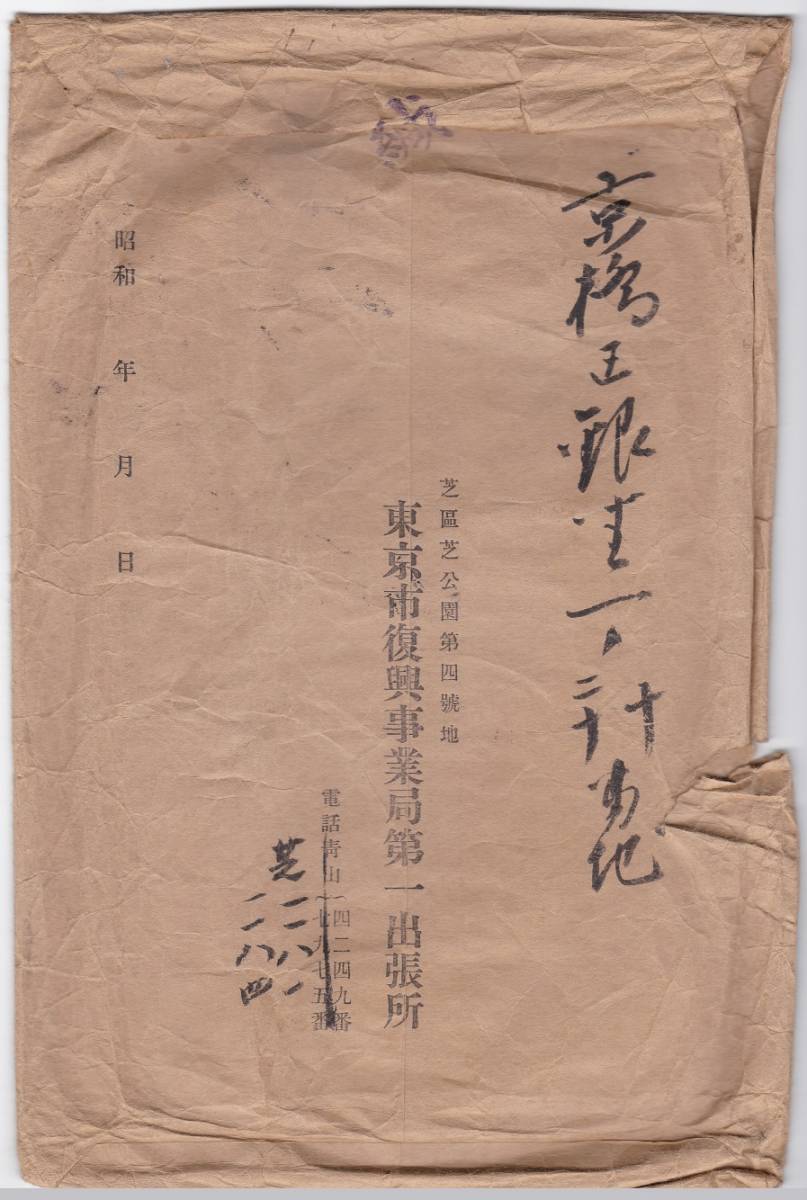 京橋区銀座一ノ二十
十
番地
芝區芝公園第四號地
東京市復興事業局第一出張所
電話靑山
四二四九番
七九七五番
芝二一八一
二一八四
昭和 年 月 日